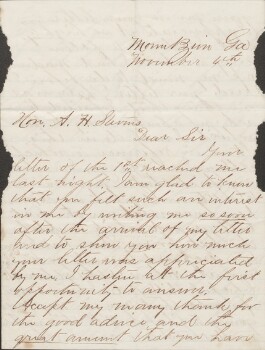 Ga
November 4th
Hon. A. H.
Dear Sir
Your
letter of the 1st reached me
last night, I am glad to know
that you felt such an interest
in me by writing me so soon
after the arrival of my letter
and to show you how much
your letter was appriciated
by me, I hasten at the first
opportunity to answer.
Accept my many thanks for
the good advice, and the
great amount that you have